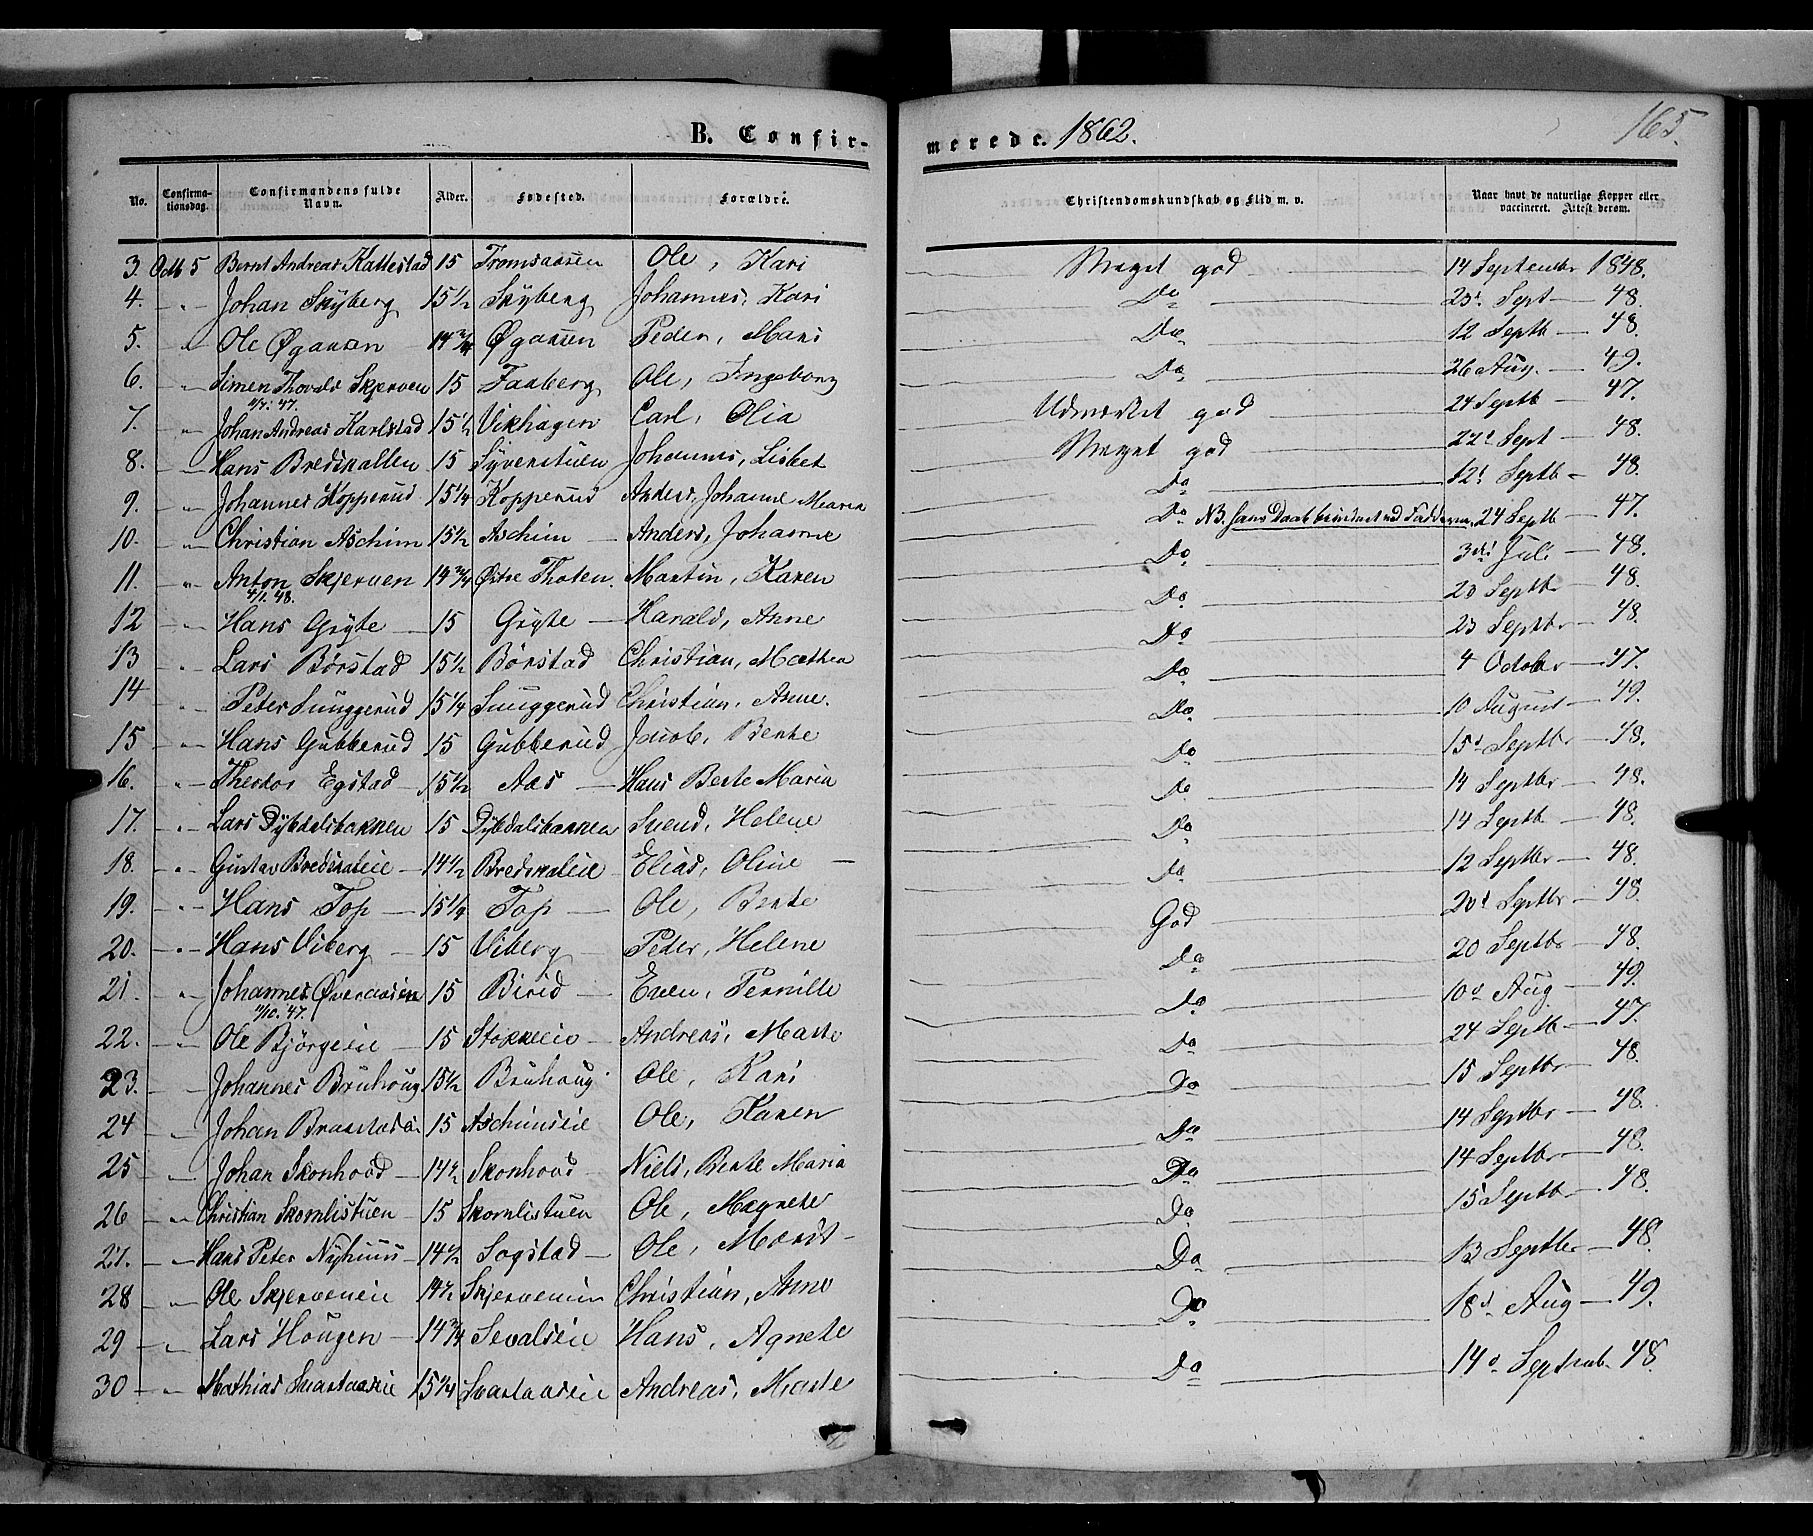 B. Confir-
merede. 1862. 165.
No. Confirma-tionsdag. Confirmandens fulde Navn. Alder. Fødested. Forældre. Christendomskundskab og Flid m. v. Naar havt de naturlige Kopper eller vaccineret. Attest derom.
3. Octb 5 Bernt Andreas Kattestad 15 Fromsaasen Ole, Kari Meget god 14 Septenbr 1848.
4. " Johan Skyberg 15 1/2 Skyberg Johannes, Kari Do 23d Sept 48.
5. " Ole Øgaarsen 14 3/4 Øgaarsen Peder, Mari Do 12 Septb 48.
6. " Simen Thorvald Skjerven 15 Faaberg Ole, Ingeborg Do 26 Aug. 49.
11/7. 47.
7. " Johan Andreas Karlstad 15 1/2 Vikhagen Carl, Olia Udmærket god 24 Septb 47.
8. " Hans Bredskallen 15 Syverstuen Johannes, Lisbet Meget god 22d Sept 48.
9. " Johannes Kopperud 15 1/4 Kopperud Anders, Johanne Maria Do 12d Septb 48.
10. " Christian Aschim 15 1/2 Aschim Anders, Johanne Do NB. hans Daab bevidnet ved Fadderne. 24 Septb 47.
11. " Anton Skjerven 14 3/4 Østre Thoten. Martin, Karen Do 3die Juli 48.
4/1. 48.
12 " Hans Gryte 15 Gryte Harald, Anne Do 20 Septbr 48.
13 " Lars Børstad 15 1/2 Børstad Christian, Mathea Do 23 Septbr 48.
14 " Peter Sunggerud 15 1/4 Sunggerud Christian, Anne. Do 4 October 47.
15 " Hans Gubberud 15 Gubberud Jacob, Berte Do 10 August 49.
16. " Theodor Egstad 15 1/2 Aas Hans Berte Maria Do 15d Septbr 48.
17. " Lars Dybdalsbakken 15 Dybdalsbakken Svend, Helene Do 14 Septbr 48.
18. " Gustav Bredskaleie 14 1/2 Bredskaleie Elias, Oline Do 14 Septb 48.
19. " Hans Top 15 1/4 Top Ole, Berte Do 12 Septbr 48.
20. " Hans Viberg 15 Viberg Peder, Helene God 20d Septbr 48.
21. " Johannes Øveraasen 15 Birid Even, Pernille Do 20 Septbr 48.
11/10. 47.
22. " Ole Bjørgeeie 15 Stokkeeie Andreas, Marte Do 10d Aug 49.
23. " Johannes Bruhoug 15 1/2 Bruhoug Ole, Kari Do 24 Septb 47.
24 " Johan 15 Aschimseie Ole, Karen Do 15 Septbr 48.
25 " Johan Skonhovd 14 1/2 Skonhovd Niels, Berte Maria Do 14 Septbr 48.
26 " Christian Skomlistuen 15 Skomlistuen Ole, Magnete Do 14 Septbr 48.
27. " Hans Peter Nyhuus 14 1/2 Sogstad Ole, Marit Do 15 Septb 48.
28 " Ole Skjerveneie 14 1/2 Skjerveneie Christian, Anne Do 13 Septbr 48.
29 " Lars Hougen 14 3/4 Sevalseie Hans, Agnete Do 18d Aug 49.
30 " Mathias Svartaaseie 15 1/4 Svartaaseie Andreas, Marte Do 14d Septemb 48.